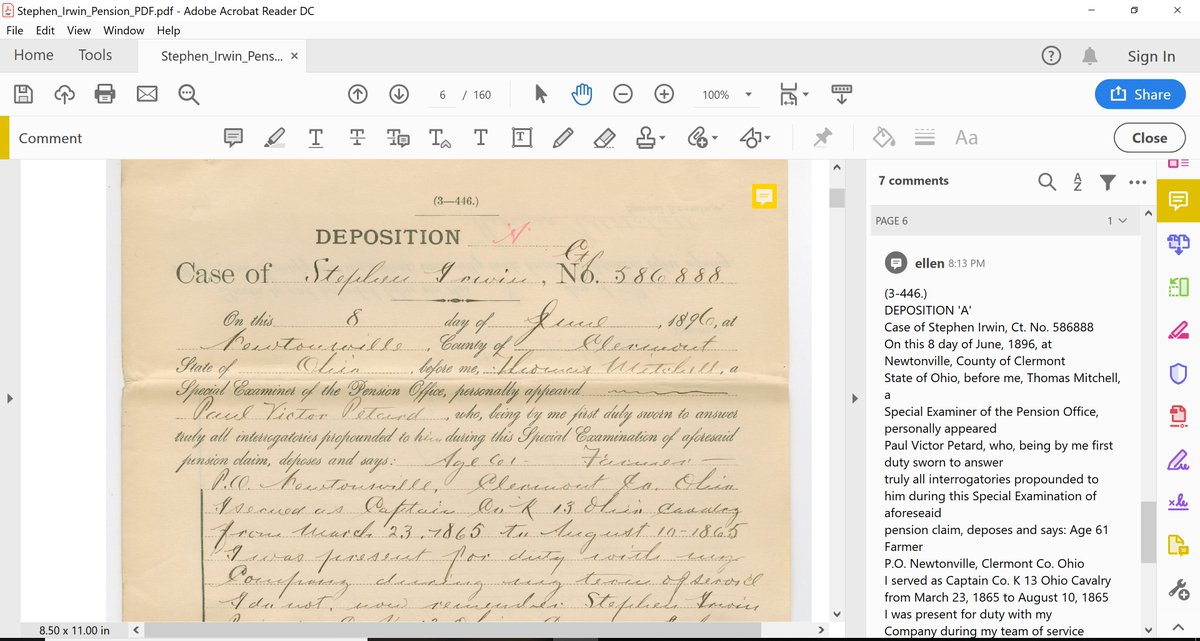 Stephen_Irwin_Pension_PDF.pdf - Adobe Acrobat Reader DC
File Edit View Window Help
Home Tools Stephen_Irwin_Pens... ×
? Sign In
6 / 160 100% Share
Comment Aa Close
(3—446.)
DEPOSITION
Ctf
Case of Stephen Irwin, No. 586888
On this 8 day of June, 1896, at
Newtonsville, County of Clermont
State of Ohio, before me, Thomas Mitchell, a
Special Examiner of the Pension Office, personally appeared
Paul Victor Petard, who, being by me first duly sworn to answer
truly all interrogatories propounded to him during this Special Examination of aforesaid
pension claim, deposes and says: Age 61 - Farmer -
P.O. Newtonsville, Clermont Co. Ohio
I served as Captain Co K 13 Ohio Cavalry
from March 23, 1865 to August 10-1865
I was present for duty with my
Company during my term of service
I do not now remember Stephen Irwin
8.50 x 11.00 in
7 comments
PAGE 6 1
ellen 8:13 PM
(3-446.)
DEPOSITION 'A'
Case of Stephen Irwin, Ct. No. 586888
On this 8 day of June, 1896, at
Newtonville, County of Clermont
State of Ohio, before me, Thomas Mitchell,
a
Special Examiner of the Pension Office,
personally appeared
Paul Victor Petard, who, being by me first
duty sworn to answer
truly all interrogatories propounded to
him during this Special Examination of
aforeseaid
pension claim, deposes and says: Age 61
Farmer
P.O. Newtonville, Clermont Co. Ohio
I served as Captain Co. K 13 Ohio Cavalry
from March 23, 1865 to August 10, 1865
I was present for duty with my
Company during my team of service